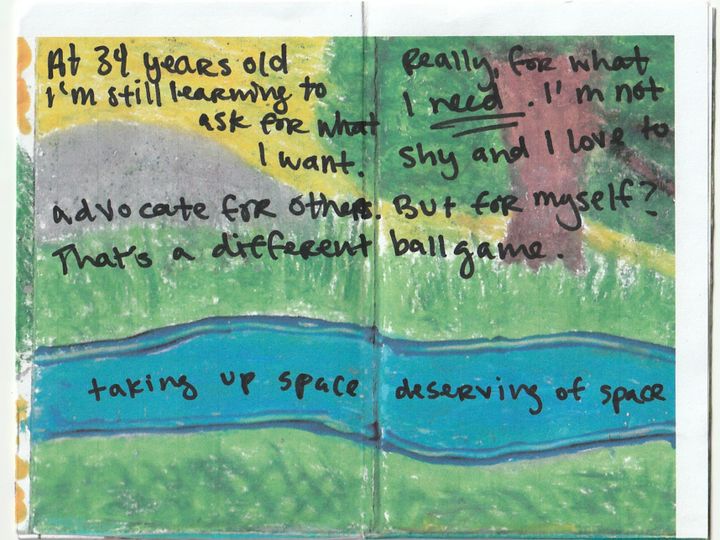 At 34 years old
I'm still learning to
ask for what
I want.
Really, for what
I need. I'm not
shy and I love to
advocate for others. But for myself?
That's a different ballgame.
taking up space deserving of space